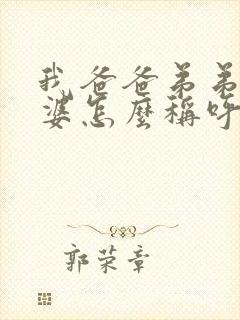 我爸爸弟弟
婆怎麼稱呼
郭荣章